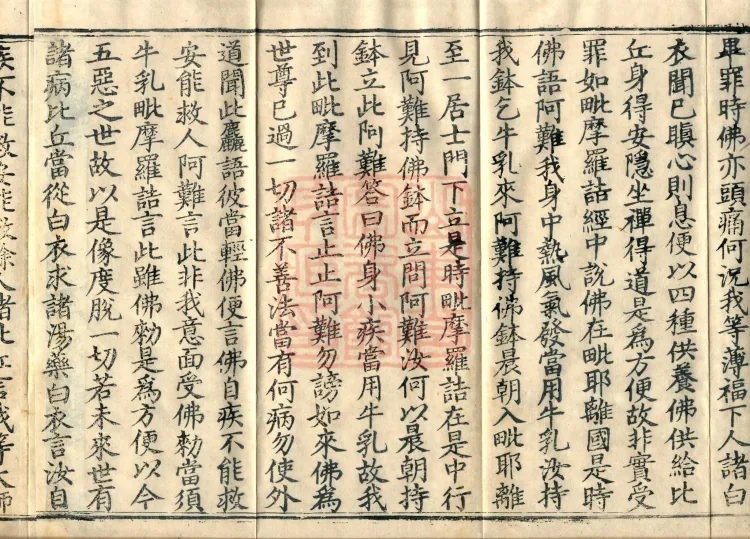 畢罪時佛亦頭痛何況我等薄福下人諸白
衣聞已瞋心則息便以四種供養佛供給比
丘身得安隱坐禪得道是為方便故非實受
罪如毗摩羅詰經中說佛在毗耶離國是時
佛語阿難我身中熱風氣發當用牛乳汝持
我鉢乞牛乳來阿難持佛鉢晨朝入毗耶離
至一居士門下立是時毗摩羅詰在是中行
見阿難持佛鉢而立問阿難汝何以晨朝持
鉢立此阿難答曰佛身小疾當用牛乳故我
到此毗摩羅詰言止止阿難勿謗如來佛為
世尊已過一切諸不善法當有何病勿使外
道聞此麤語彼當輕佛便言佛自疾不能救
安能救人阿難言此非我意面受佛勑當須
牛乳毗摩羅詰言此雖佛勑是為方便以今
五惡之世故以是像度脫一切若未來世有
諸病比丘當從白衣求諸湯藥白衣言汝自
疾不能救安能救餘人諸比丘言我等大師